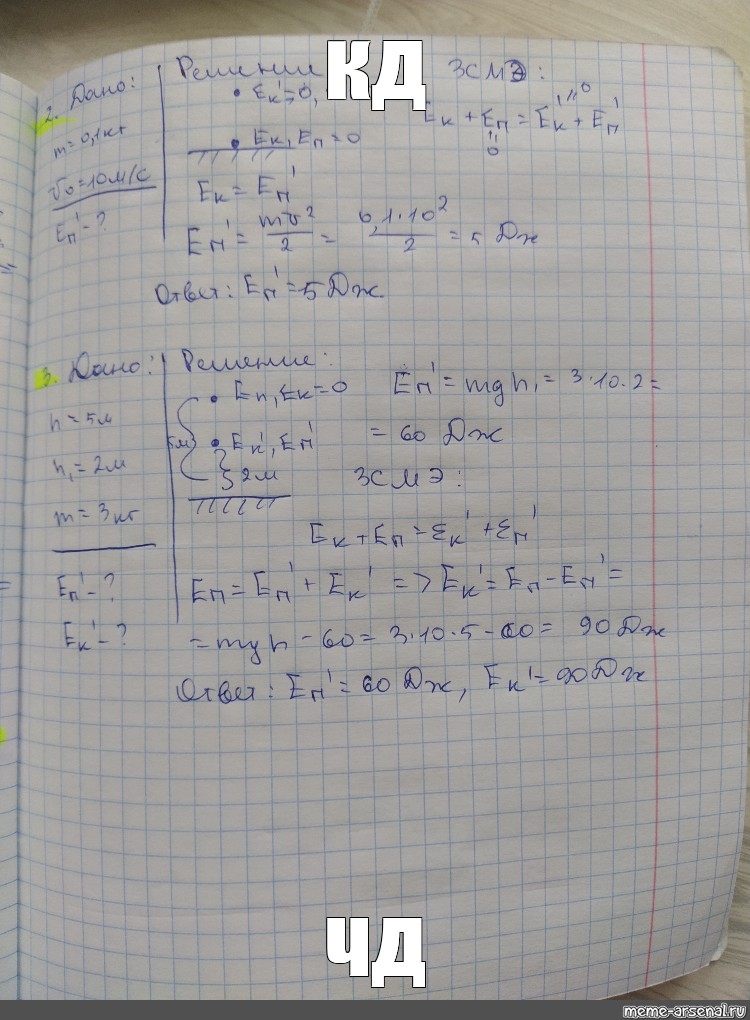 КД
2. Дано:
m = 0,1 кг
v₀ = 10 м/с
Eп' - ?
Решение
ЗСМЭ:
Eк' = 0,
Eк, Eп = 0
Eк + Eп = Eк' + Eп'
0
0
Eк = Eп'
Eп' = mv²/2 = 0,1·10²/2 = 5 Дж
Ответ: Eп' = 5 Дж
3. Дано:
h = 5м
h₁ = 2м
m = 3 кг
Eп' - ?
Eк' - ?
Решение:
Eп, Eк = 0
5м
Eк', Eп'
2м
Eп' = mgh₁ = 3·10·2 =
= 60 Дж
ЗСМЭ:
Eк + Eп = Eк' + Eп'
Eп = Eп' + Eк' => Eк' = Eп - Eп' =
= mgh - 60 = 3·10·5 - 60 = 90 Дж
Ответ: Eп' = 60 Дж, Eк' = 90 Дж
ЧД
meme-arsenal.ru